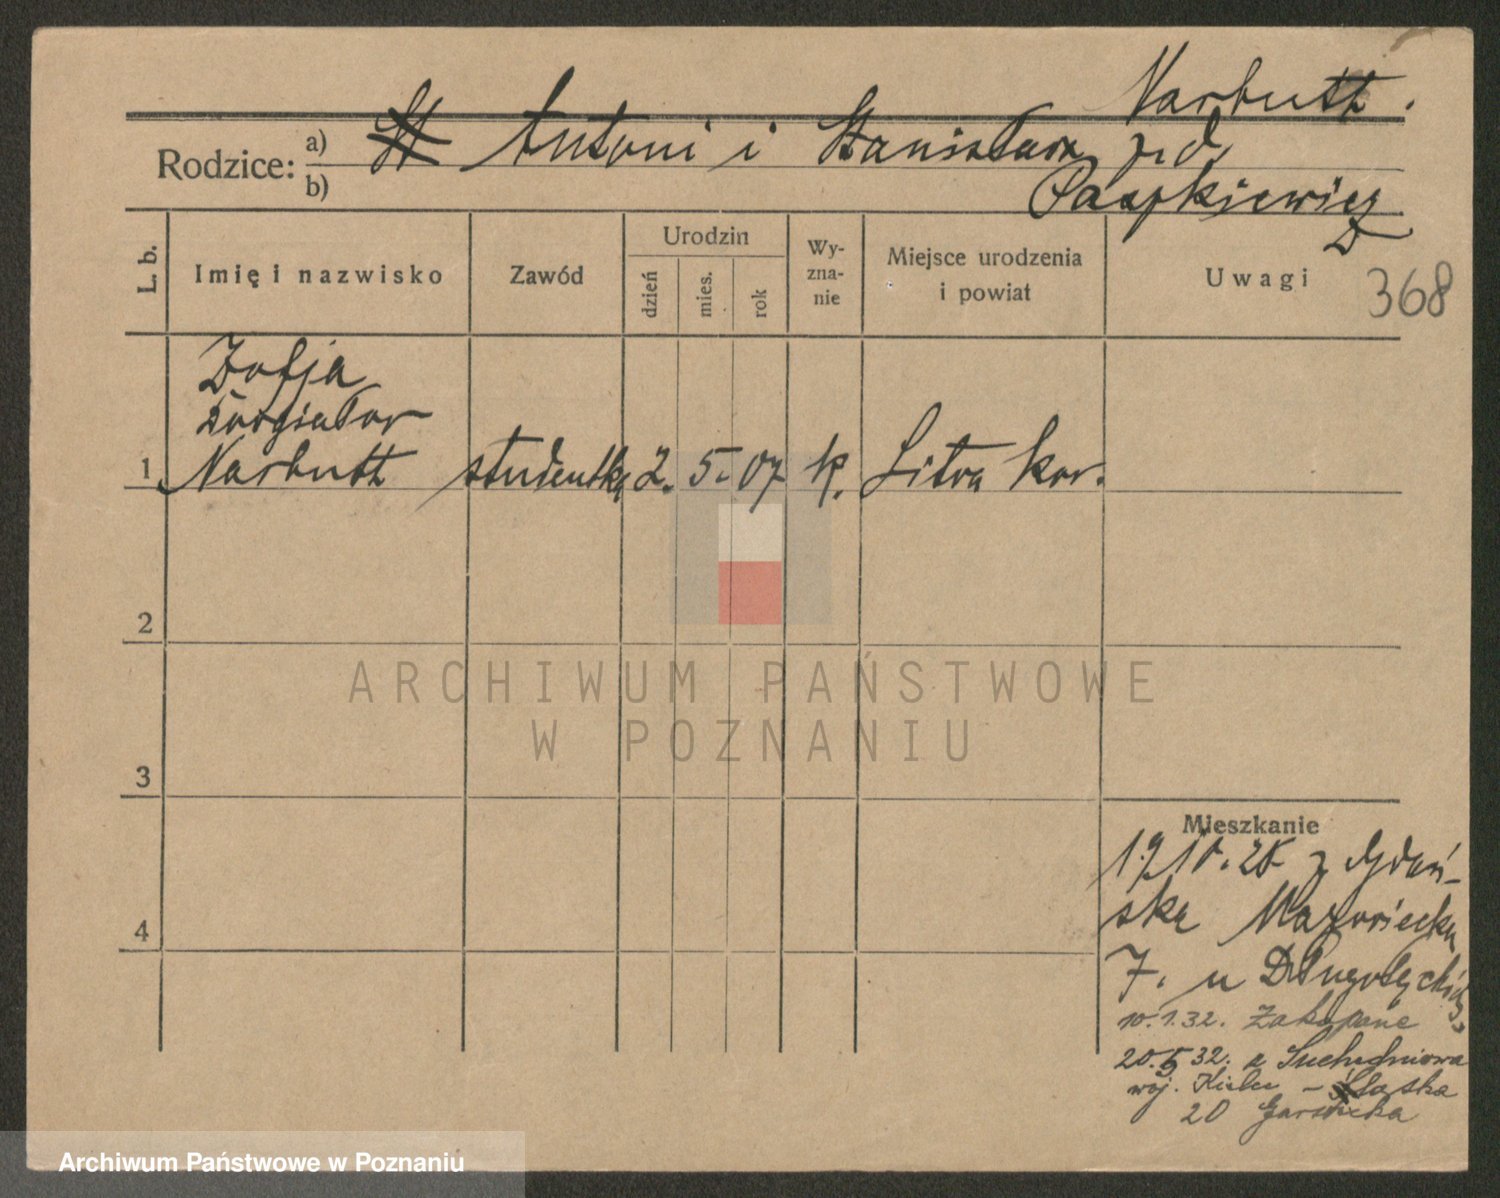 Narbutt.
Rodzice: a) Antoni i Stanisława z d.
b) Paszkiewicz
L. b.
Imię i nazwisko
Zawód
Urodzin
dzień
mies.
rok
Wy-
zna-
nie
Miejsce urodzenia
i powiat
Uwagi
368
Zofja
Narbutt
1 studentka 2. 5. 07 k. Litwa kow.
2
3
4
ARCHIWUM PAŃSTWOWE
W POZNANIU
Mieszkanie
z Gdań-
ska Mazowiecka
7. u
10.1.32. Zakopane
20.5.32. z Suchedniowa
woj. Kielce - Śląska
20 Garstecka
Archiwum Państwowe w Poznaniu